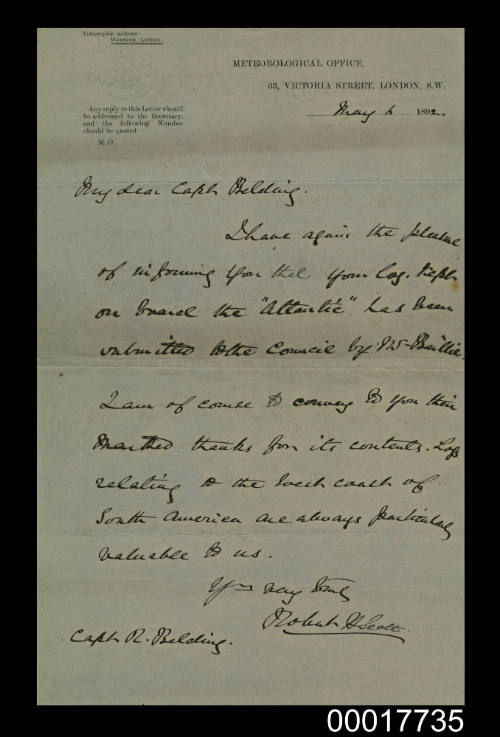 Telegraphic address:
Weather, London.
METEOROLOGICAL OFFICE,
63, VICTORIA STREET, LONDON, S.W.
Any reply to this Letter should
be addressed to the Secretary,
and the following Number
should be quoted
M.O.
May 6 1892.
My dear Capt. Belding.
I have again the pleasure
of informing you that your log, kept
on board the "Atlantic" has been
submitted to the Council by Baillie.
I am of course to convey to you their
thanks for its contents. Logs
relating to the West coast of
South America are always particularly
valuable to us.
Yrs very truly
Robert H Scott
Capt R. Belding.
00017735